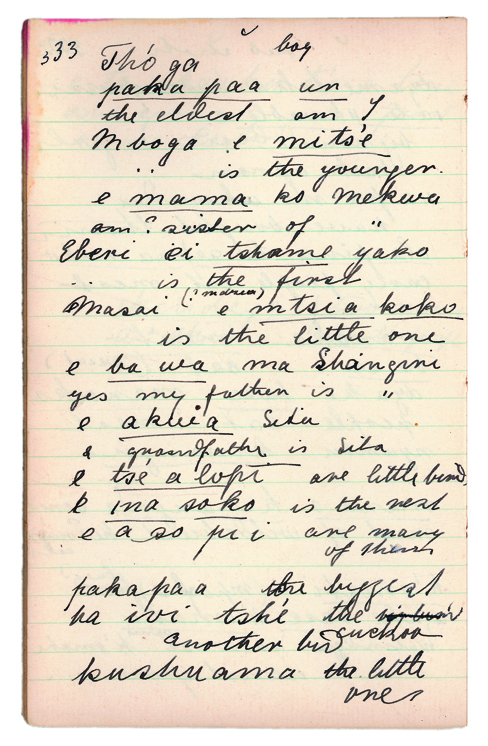 333 Thóga boy
paka paa un
the eldest am I
Mboga e mitsé
" is the younger.
e mama ko Mekwa
am? sister of "
Eberi ei tshame yako
... is the first
Masai (? ) e mtsia koko
is the little one
e ba wa ma Shangini
yes my father is "
e akuia Sita
& grandfather is Sita
e tsé a lopi are little bird
e ina soko is the nest
e a so pi i are many
of them
pakapaa the biggest
ba ivi tshé the cuckoo
another bird
kushuama the little
ones